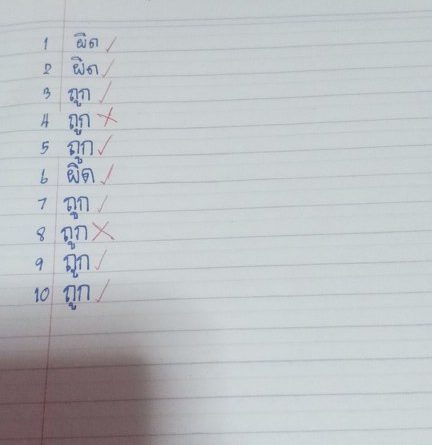 1 ผิด ✓
2 ผิด ✓
3 ถูก ✓
4 ถูก ✗
5 ถูก ✓
6 ผิด ✓
7 ถูก ✓
8 ถูก ✗
9 ถูก ✓
10 ถูก ✓